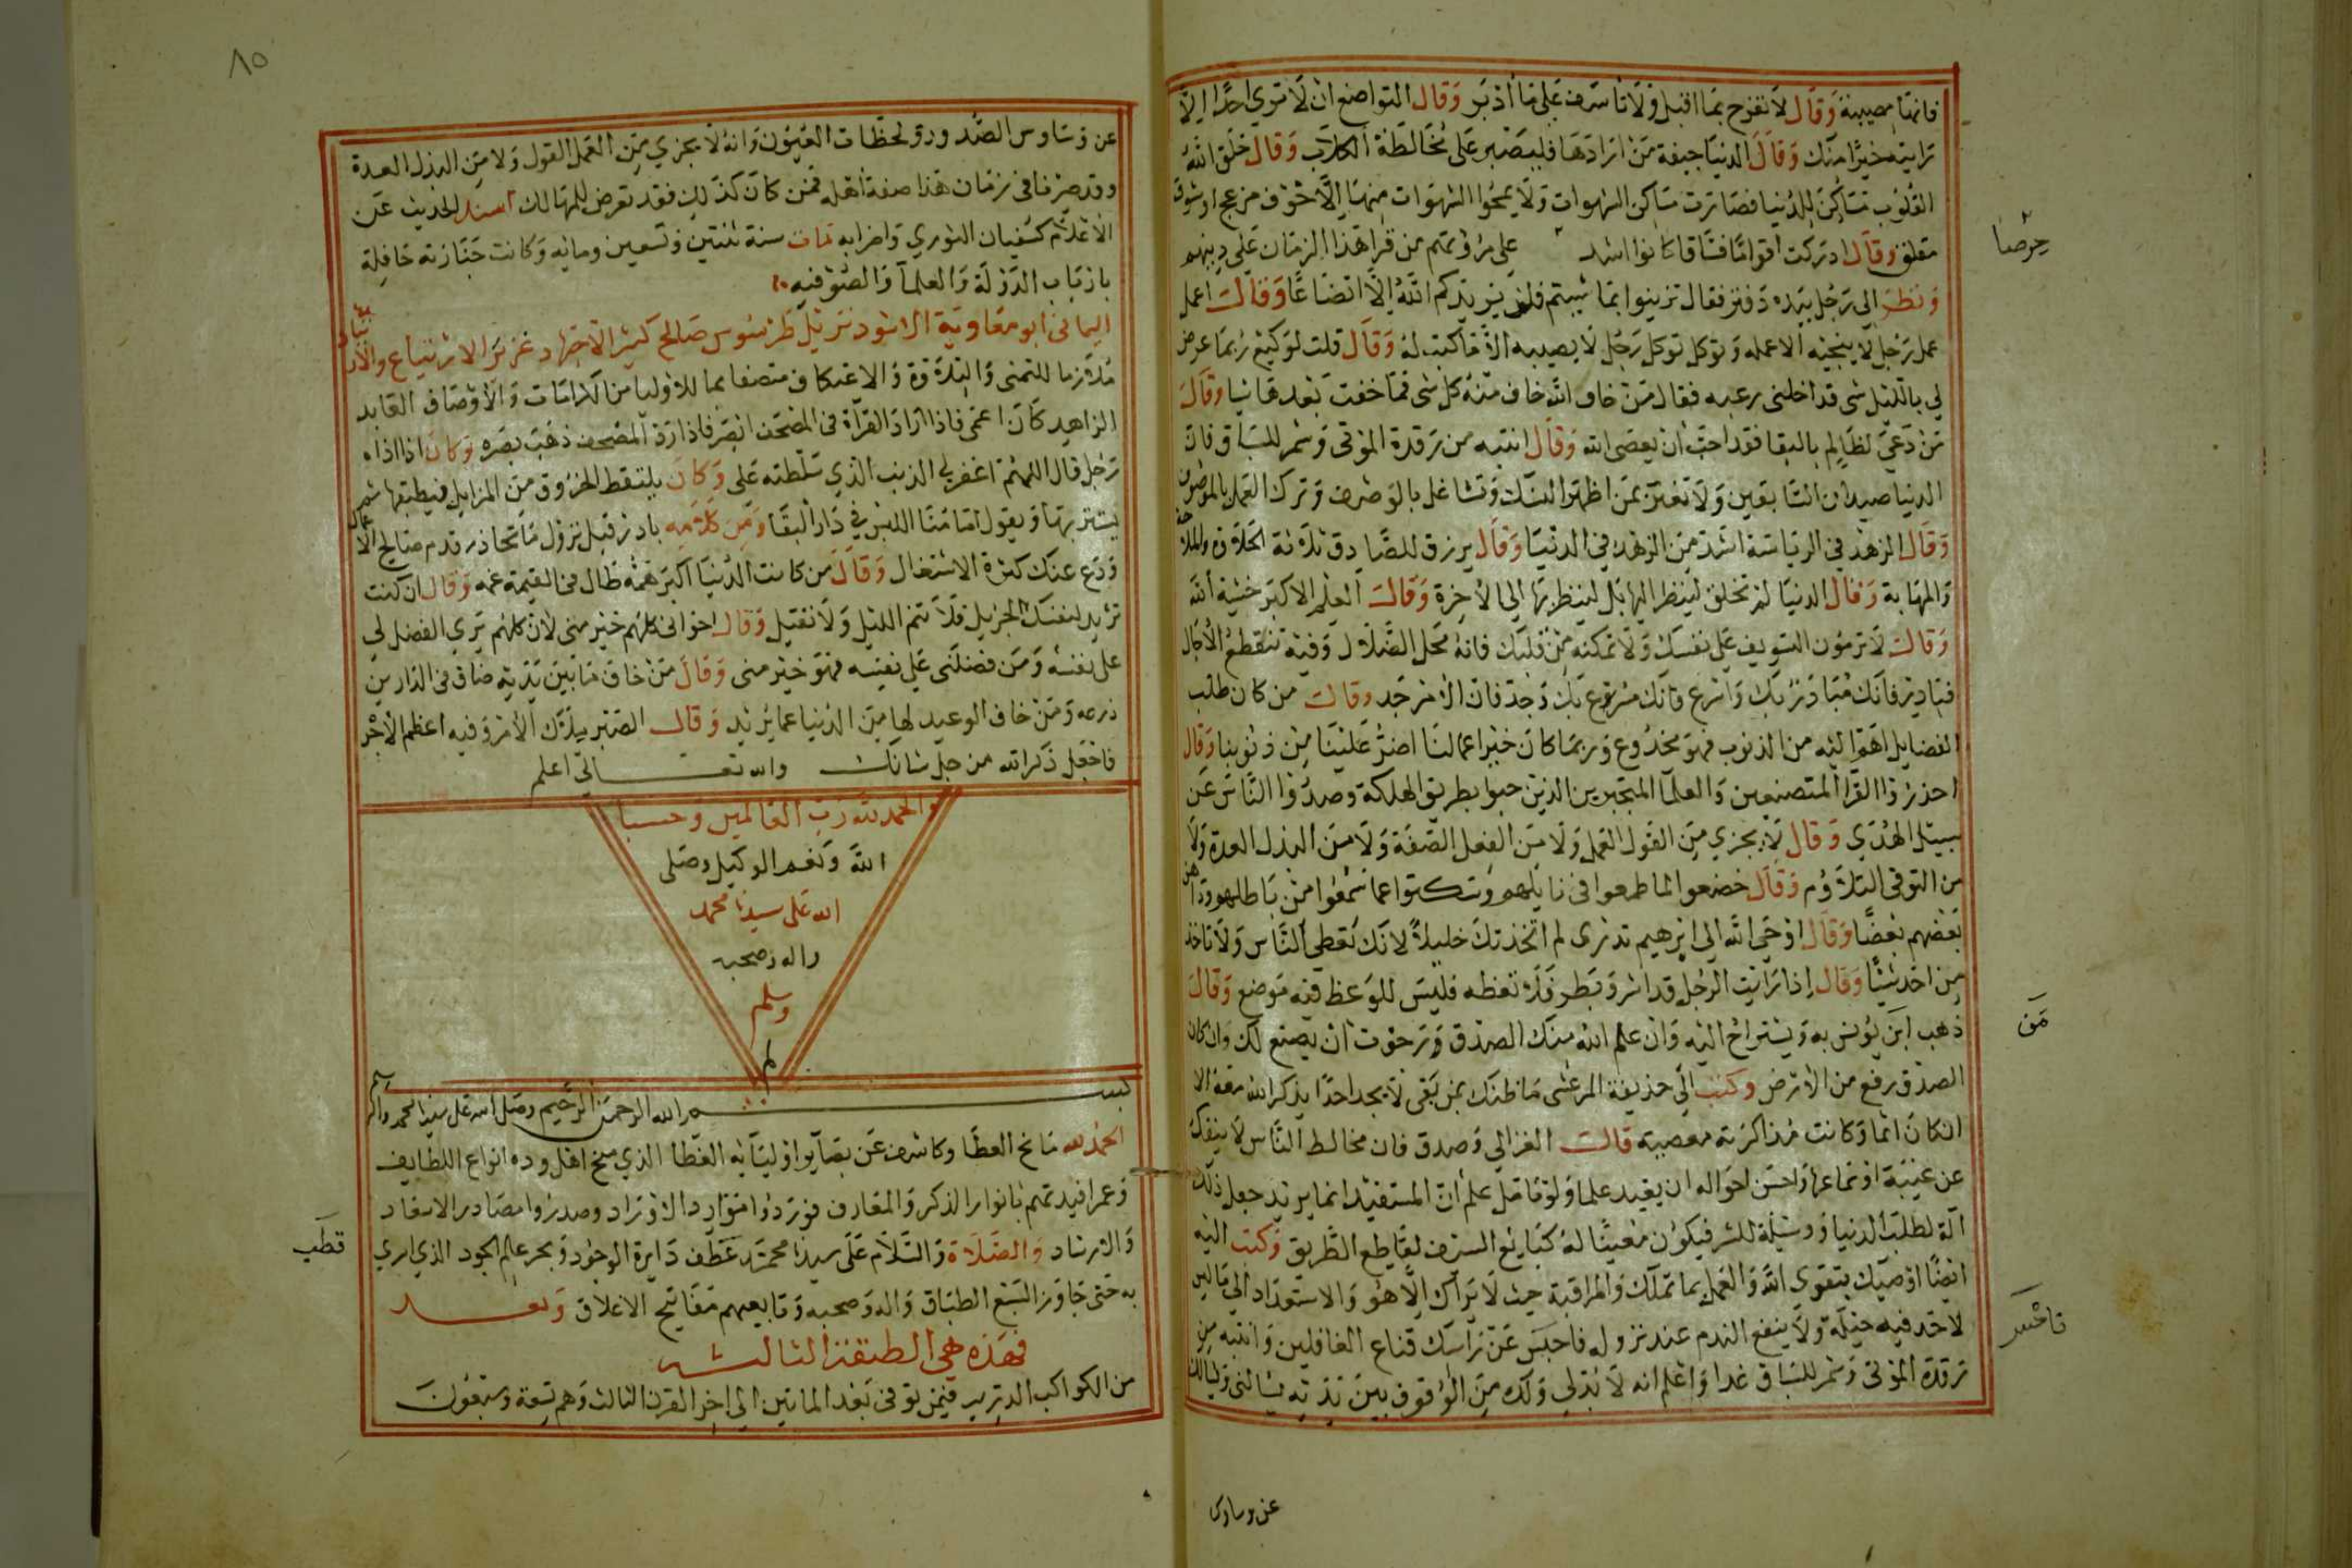 فانها مصيبة وقال لا تفرح بما اقبل ولا تاسف على ما ادبر وقال التواضع ان لا ترى احدا الا
رايته خيرا منك وقال الدنيا جيفة من ارادها فليصبر على مخالطة الكلاب وقال خلق الله
القلوب مساكن للدنيا فصارت مساكن الشهوات ولا يمحوا الشهوات منها الا خوف مزعج او شوق
مقلق وقال ادركت اقواما فساقا كانوا اشد على مروتهم من قرا هذا الزمان على دينهم
حرصا
ونظر الى رجل بيده دفتر فقال تزينوا بما شيتم فلن يزيدكم الله الا اتضاعا وقال اعمل
عمل رجل لا ينجيه الا عمله وتوكل توكل رجل لا يصيبه الا ما كتب له وقال قلت لوكيع ربما عرض
لي بالليل شي قد اخلنى رعبه فقال من خاف الله خاف منه كل شي فما خفت بعدها شيا وقال
من دعى لظالم بالبقا فقد احب ان يعصى الله وقال انتبه من رقدة الموتى وشمر للسباق فان
الدنيا ميدان السابقين ولا تغتر بمن اظهر النسك وتشاغل بالوصف وترك العمل بالموصوف
وقال الزهد في الرياسة اشد من الزهد في الدنيا وقال يرزق للصادق ثلاثة الحلاوة والملاحة
والمهابة وقال الدنيا لم تخلق لينظر اليها بل لينظر بها الى الاخرة وقال العلم الاكبر خشية الله
وقال لا ترمون التسويف على نفسك ولا تمكنه من قلبك فانه محل الضلال وفيه تنقطع الاجال
فبادر فانك مبادر بك واسرع فانك مسروع بك وجد فان الامر جد وقال من كان طلب
الفضايل اهم اليه من الذنوب فهو مخدوع وربما كان خير اعمالنا اضر علينا من ذنوبنا وقال
احذروا القرا المتصنعين والعلما المتجبرين الذين حبوا بطريق الهلكة وصدوا الناس عن
سبيل الهدى وقال لا يجزي من القول العمل ولا من الفعل الصفة ولا من البذل العدة ولا
من التوقى التلاوم وقال خضعوا لما طمعوا فى نايلهم وسكتوا عما سمعوا من باطلهم وداهن
بعضهم بعضا وقال اوحى الله الى ابرهيم تدرى لم اتخذتك خليلا لانك تعطى الناس ولا تاخذ
من احد شيئا وقال اذا رايت الرجل قد اشر وبطر فلا تعظه فليس للوعظ فيه موضع وقال
ذهب ابن يونس به ويستراح اليه وان علم الله منك الصدق رجوت ان يصنع لك وان كان
من
الصدق رفع من الارض وكتب الى حذيفة المرعشى ما ظنك بمن بقى لا يجد احدا يذكر الله معه الا
ان كان اثما وكانت مذاكرته معصيته قال الغزالي وصدق فان مخالط الناس لا ينفك
عن غيبة او سماعها واحسن احواله ان يفيد علما ولو تامل علم ان المستفيد انما يريد جعل ذلك
الة لطلب الدنيا ووسيلة للشر فيكون معينا له كبايع السيف لقاطع الطريق وكتب اليه
ايضا اوصيك بتقوى الله والعمل بما تملك والمراقبة حيث لا يراك الا هو والاستعداد الى ما ليس
لاحد فيه حيلة ولا ينفع الندم عند نزوله فاحبس عن راسك قناع الغافلين وانتبه من
فاحسر
رقدة الموتى وشمر للسباق غدا واعلم انه لا بد لي ولك من الوقوف بين يديه يسالنى ويسالك
عن وساوس
٨٥
عن وساوس الصدور ولحظات العيون وانه لا يجزي من العمل القول ولا من البذل العدة
وقد صرنا فى زمان هذا صفة اهله فمن كان كذلك فقد تعرض للمهالك اسند الحديث عن
الاعلام كسفيان الثوري واضرابه مات سنة ثنتين وتسعين ومايه وكانت جنازته حافلة
بارباب الدولة والعلما والصوفيه
اليمانى ابو معاوية الاسود نزيل طرسوس صالح كثير الاجتهاد غزير الارتياع والارتياد
ملازما للتمنى والتلاوة والاعتكاف متصفا بما للاوليا من الكرامات والاوصاف العابد
الزاهد كان اعمى فاذا اراد القراة فى المصحف ابصر فاذا رد المصحف ذهب بصره وكان اذا اذاه
رجل قال اللهم اغفر لي الذنب الذي سلطته على وكان يلتقط الخروق من المزابل فيطبقها ثم
يستتر بها ويقول امامنا اللبس في دار البقا ومن كلامه بادر قبل نزول ما تحاذر قدم صالح الاعمال
ودع عنك كثرة الاشتغال وقال من كانت الدنيا اكبر همه طال فى القيمة غمه وقال ان كنت
تريد لنفسك الجزيل فلا تنم الليل ولا تقيل وقال اخوانى كلهم خير منى لان كلهم يرى الفضل لي
على نفسه ومن فضلنى على نفسه فهو خير منى وقال من خاف ما بين يديه ضاق فى الدارين
ذرعه ومن خاف الوعيد لها من الدنيا عما يريد وقال الصبر ملاك الامر وفيه اعظم الاجر
فاجعل ذكر الله من جل شانك والله تعالى اعلم
والحمد لله رب العالمين وحسبنا
الله ونعم الوكيل وصلى
الله على سيدنا محمد
واله وصحبه
وسلم
م
بسم الله الرحمن الرحيم وصلى الله على سيدنا محمد واله
الحمد لله مانح العطا وكاشف عن بصاير اوليايه الغطا الذي منح اهل وده انواع اللطايف
وعمر افيدتهم بانوار الذكر والمعارف فوردوا موارد الاوراد وصدروا مصادر الاسعاد
والارشاد والصلاة والسلام على سيدنا محمد قطب دايرة الوجود وبحر علم الجود الذي اسري
قطب
به حتى جاوز السبع الطباق واله وصحبه وتابعيهم مفاتيح الاغلاق وبعد
فهذه هي الطبقة الثالثه
من الكواكب الدرية فيمن توفى بعد الماتين الى اخر القرن الثالث وهم تسعة وسبعون